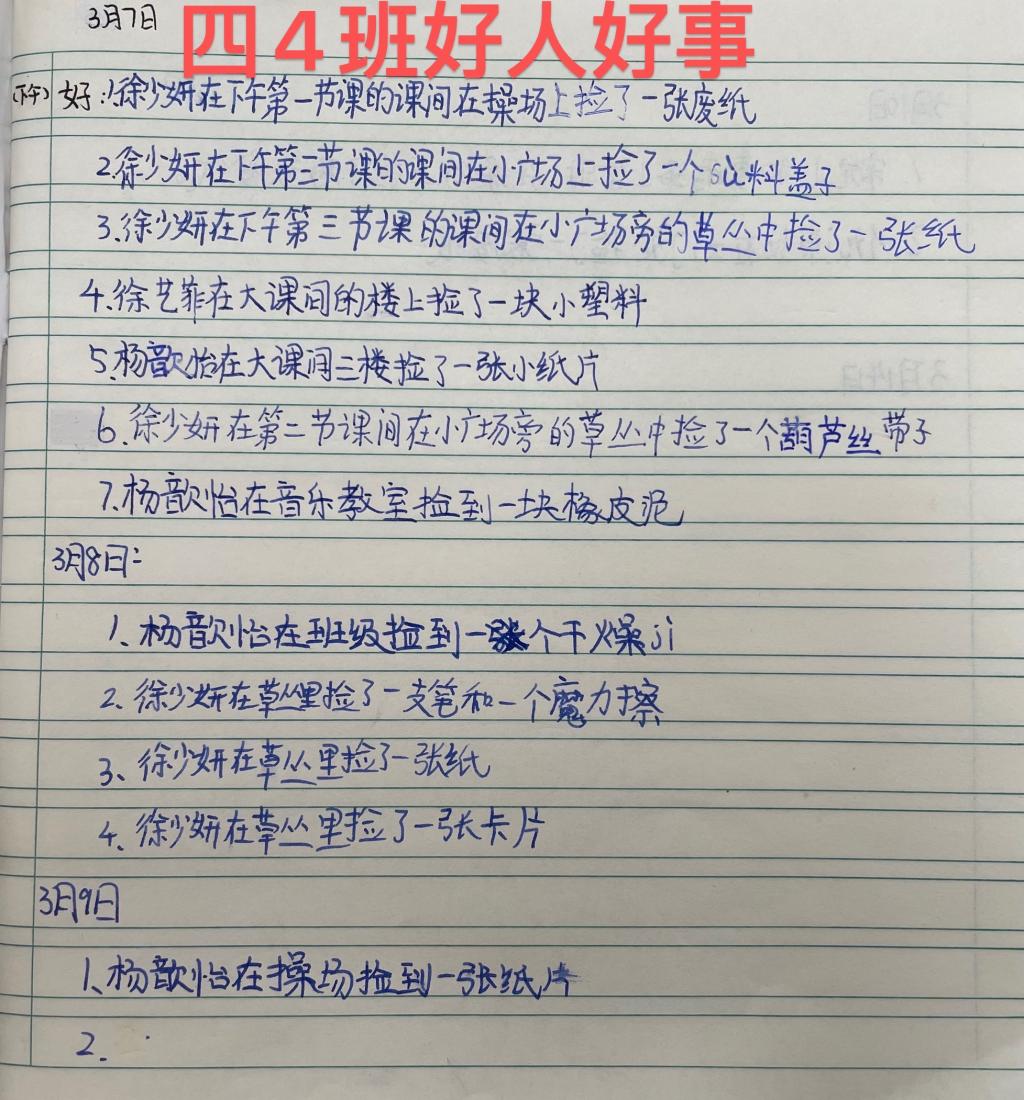 3月7日
四4班好人好事
(下午) 好:1.徐少妍在下午第一节课的课间在操场上捡了一张废纸
2.徐少妍在下午第三节课的课间在小广场上捡了一个sù料盖子
3.徐少妍在下午第三节课的课间在小广场旁的草丛中捡了一张纸
4.徐艺菲在大课间的楼上捡了一块小塑料
5.杨歆怡在大课间三楼捡了一张小纸片
6.徐少妍在第二节课间在小广场旁的草丛中捡了一个葫芦丝带子
7.杨歆怡在音乐教室捡到一块橡皮泥
3月8日:
1、杨歆怡在班级捡到一个干燥ji
2、徐少妍在草丛里捡了一支笔和一个魔力擦
3、徐少妍在草丛里捡了一张纸
4、徐少妍在草丛里捡了一张卡片
3月9日
1、杨歆怡在操场捡到一张纸片
2.